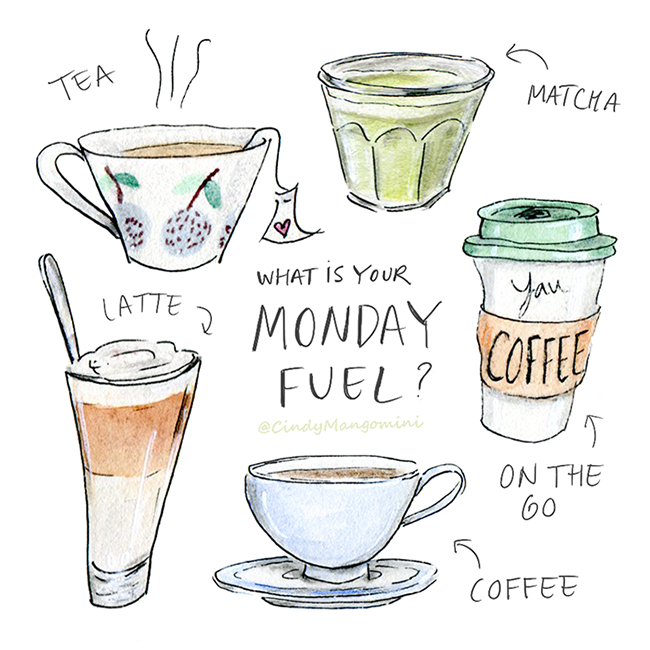 TEA
MATCHA
WHAT IS YOUR
MONDAY
FUEL?
@CindyMangomini
LATTE
Yay
COFFEE
ON THE
GO
COFFEE